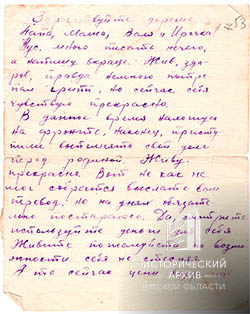 Здравствуйте дорогие
Папа, Мама, Валя и Ирочка!
много писать нечего,
а напишу вкратце: Жив, здо-
ров, правда немного потре-
пал грипп, но сейчас себя
чувствую прекрасно.
В данное время нахожусь
на фронте, наконец, присту
пил выполнять свой долг
перед родиной. Живу
прекрасно. Вот не как не
мог собрался выслать вам
перевод, но на днях обязате
льно постараюсь. Да, смотрите
используйте деньги для себя
Живите пожалуйста по возмо
жности себя не
А то сейчас цены
53
ИСТОРИЧЕСКИЙ
АРХИВ
ОБЛАСТИ